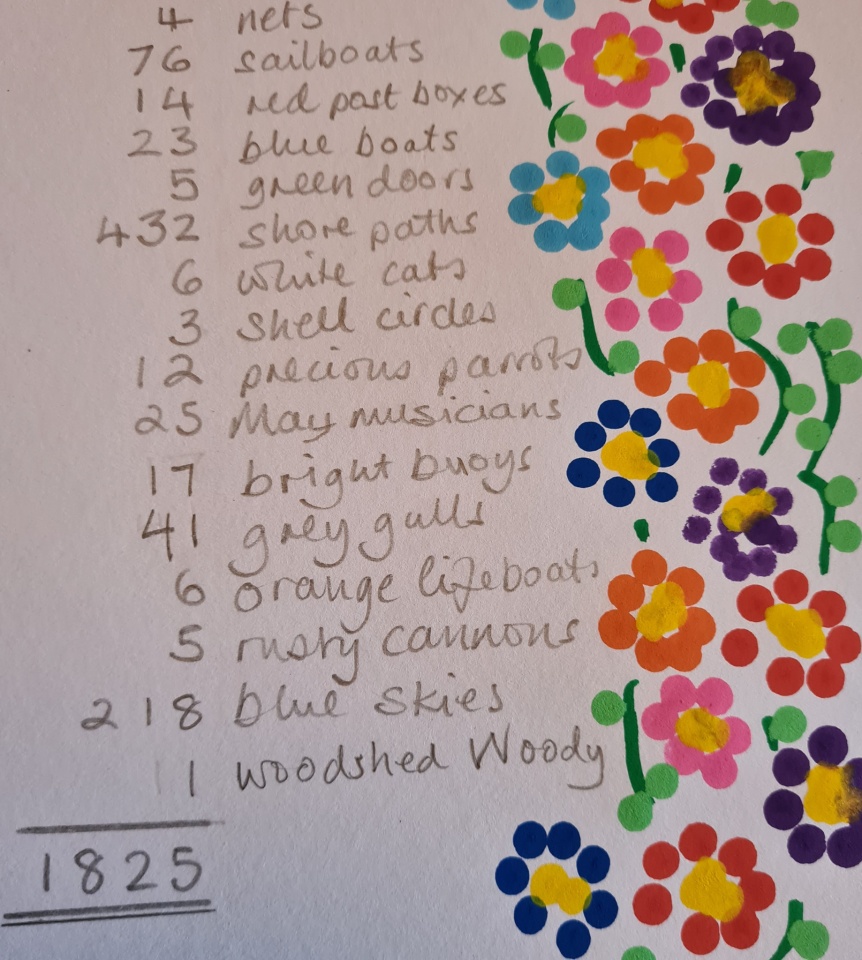 4 nets
76 sailboats
14 red post boxes
23 blue boats
5 green doors
432 shore paths
6 white cats
3 shell circles
12 precious parrots
25 May musicians
17 bright buoys
41 grey gulls
6 orange lifeboats
5 rusty cannons
218 blue skies
1 woodshed Woody
1825